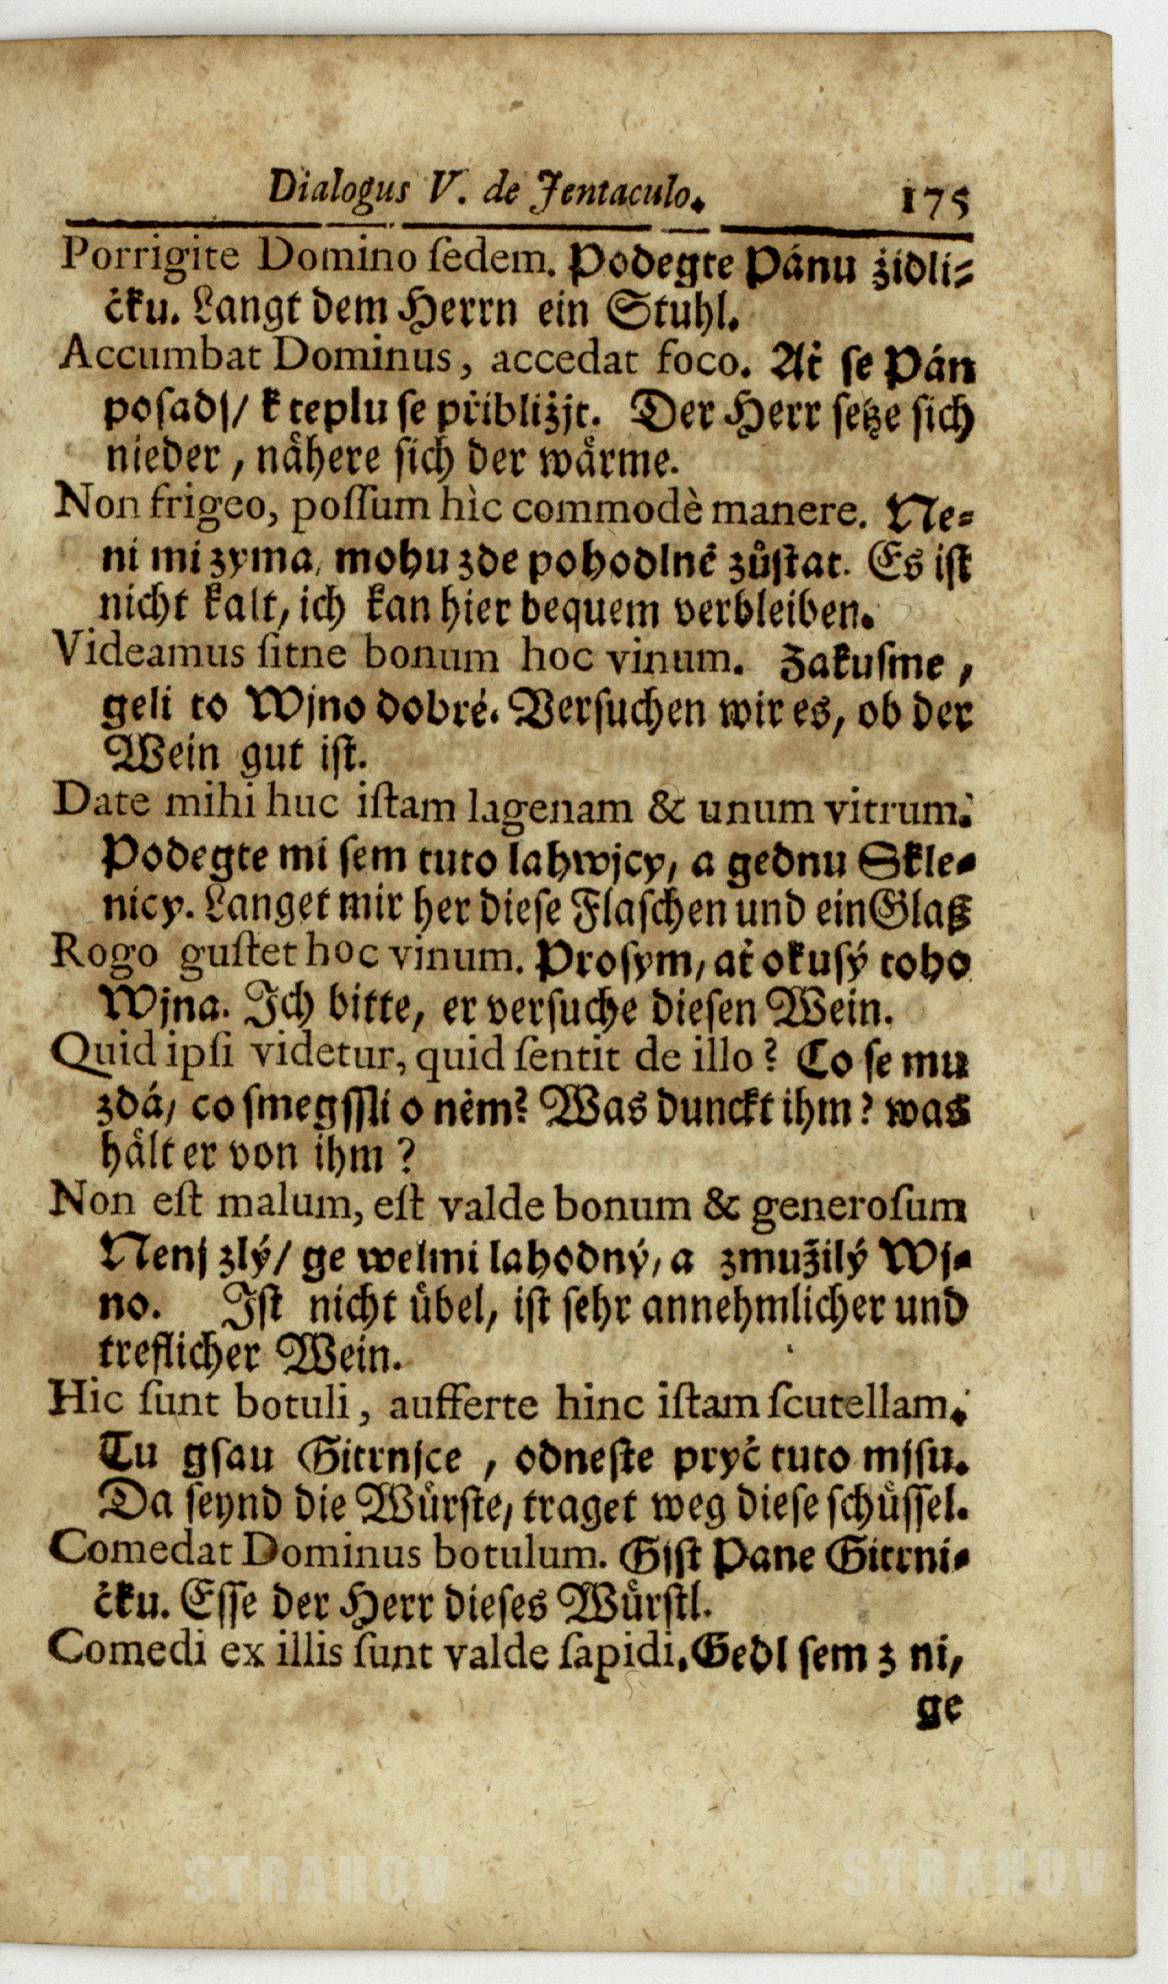 Dialogus V. de Jentaculo. 175
Porrigite Domino ſedem. Podegte Pánu židli-
čku. Langt dem Herrn ein Stuhl.
Accumbat Dominus, accedat foco. Ať ſe Pán
poſadj/ k teplu ſe přibližjt. Der Herr ſetze ſich
nieder, nåhere ſich der wårme.
Non frigeo, poſſum hìc commodè manere. Ne-
ni mi zyma, mohu zde pohodlně zůſtat. Es iſt
nicht kalt, ich kan hier bequem verbleiben.
Videamus ſitne bonum hoc vinum. Zakuſme,
geli to Wjno dobré. Verſuchen wir es, ob der
Wein gut iſt.
Date mihi huc iſtam lagenam & unum vitrum.
Podegte mi ſem tuto lahwjcy, a gednu Skle-
nicy. Langet mir her dieſe Flaſchen und ein Glaß
Rogo guſtet hoc vinum. Proſym, ať okuſý toho
Wjna. Ich bitte, er verſuche dieſen Wein.
Quid ipſi videtur, quid ſentit de illo? Co ſe mu
zdá, co ſmegſſli o něm? Was dunckt ihm? was
hålt er von ihm?
Non eſt malum, eſt valde bonum & generoſum
Nenj zlý/ ge welmi lahodný, a zmužilý Wj-
no. Iſt nicht übel, iſt ſehr annehmlicher und
treflicher Wein.
Hic ſunt botuli, aufferte hinc iſtam ſcutellam.
Tu gſau Gitrnjce, odneſte pryč tuto mjſu.
Da ſeynd die Wůrſte, traget weg dieſe ſchůſſel.
Comedat Dominus botulum. Gjſt Pane Gitrni-
čku. Eſſe der Herr dieſes Wůrſtl.
Comedi ex illis ſunt valde ſapidi. Gedl ſem z ni,
ge
STRAHOV STRAHOV